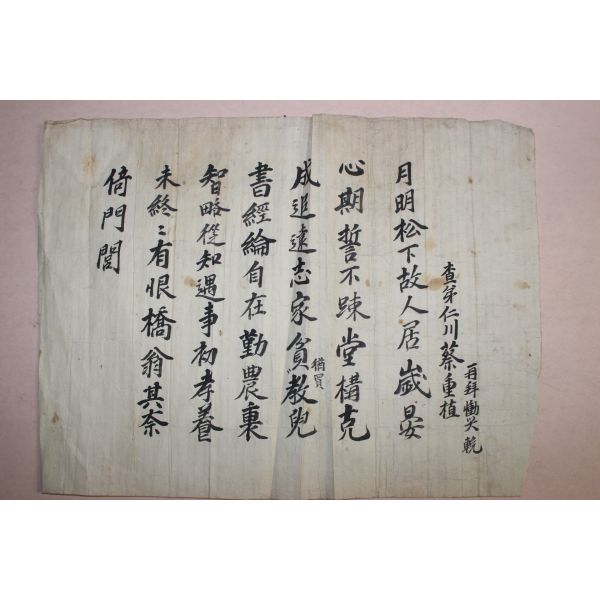 査弟仁川蔡重植再拜慟哭輓
月明松下故人居歲晏
心期誓不踈堂構克
成追遠志家貧猶買教兒
書經綸自在勤農裏
智略從知遇事初孝養
未終〻有恨橋翁其奈
倚門閭